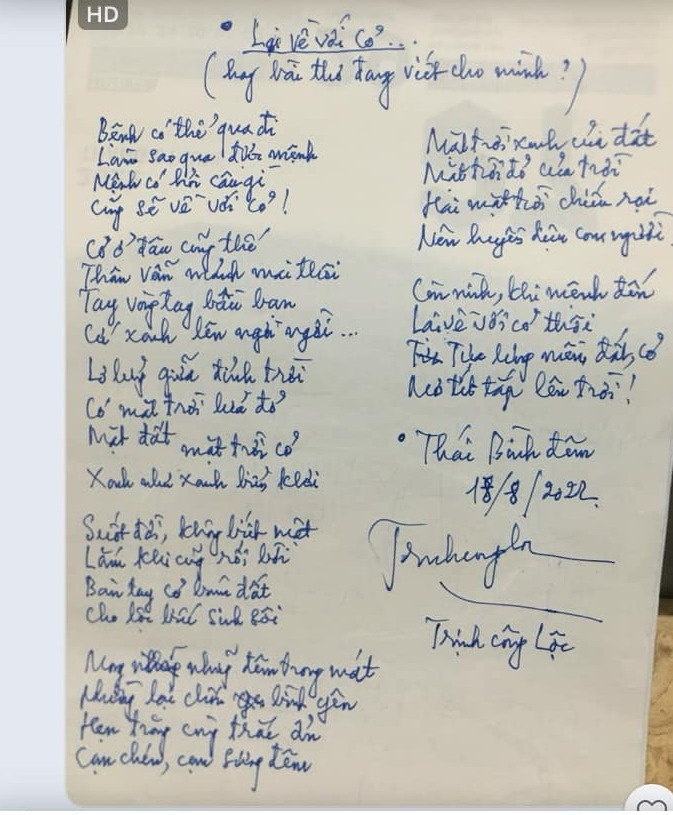 HD
• Lại về với cỏ...
(hay bài thơ đang viết cho mình?)
Bệnh có thể qua đi
Làm sao qua được mệnh
Mệnh có hồi câu gì
Cũng sẽ về với cỏ!
Cỏ ở đâu cũng thế
Thân vẫn mảnh mai thôi
Tay vòng tay bầu bạn
Cứ xanh lên ngời ngời...
Lơ lửng giữa đỉnh trời
Có mặt trời lửa đỏ
Mặt đất mặt trời cỏ
Xanh như xanh biếc khơi
Suốt đời, không biết mệt
Lắm khi cũng rối bời
Bàn tay cỏ bám đất
Cho lộc biếc sinh sôi
Mong những đêm trong mát
Nhưng lại chốn bình yên
Hẹn trăng cùng trắc ẩn
Cạn chén, cạn sương đêm
Mặt trời xanh của đất
Mặt trời đỏ của trời
Hai mặt trời chiếu rọi
Nên huyền diệu con người
Còn mình, khi mệnh đến
Lại về với cỏ thôi
Từ lòng miền đất, cỏ
Nẻo tít tắp lên trời!
• Thái Bình đêm
18/8/2022.
Trịnh Công Lộc